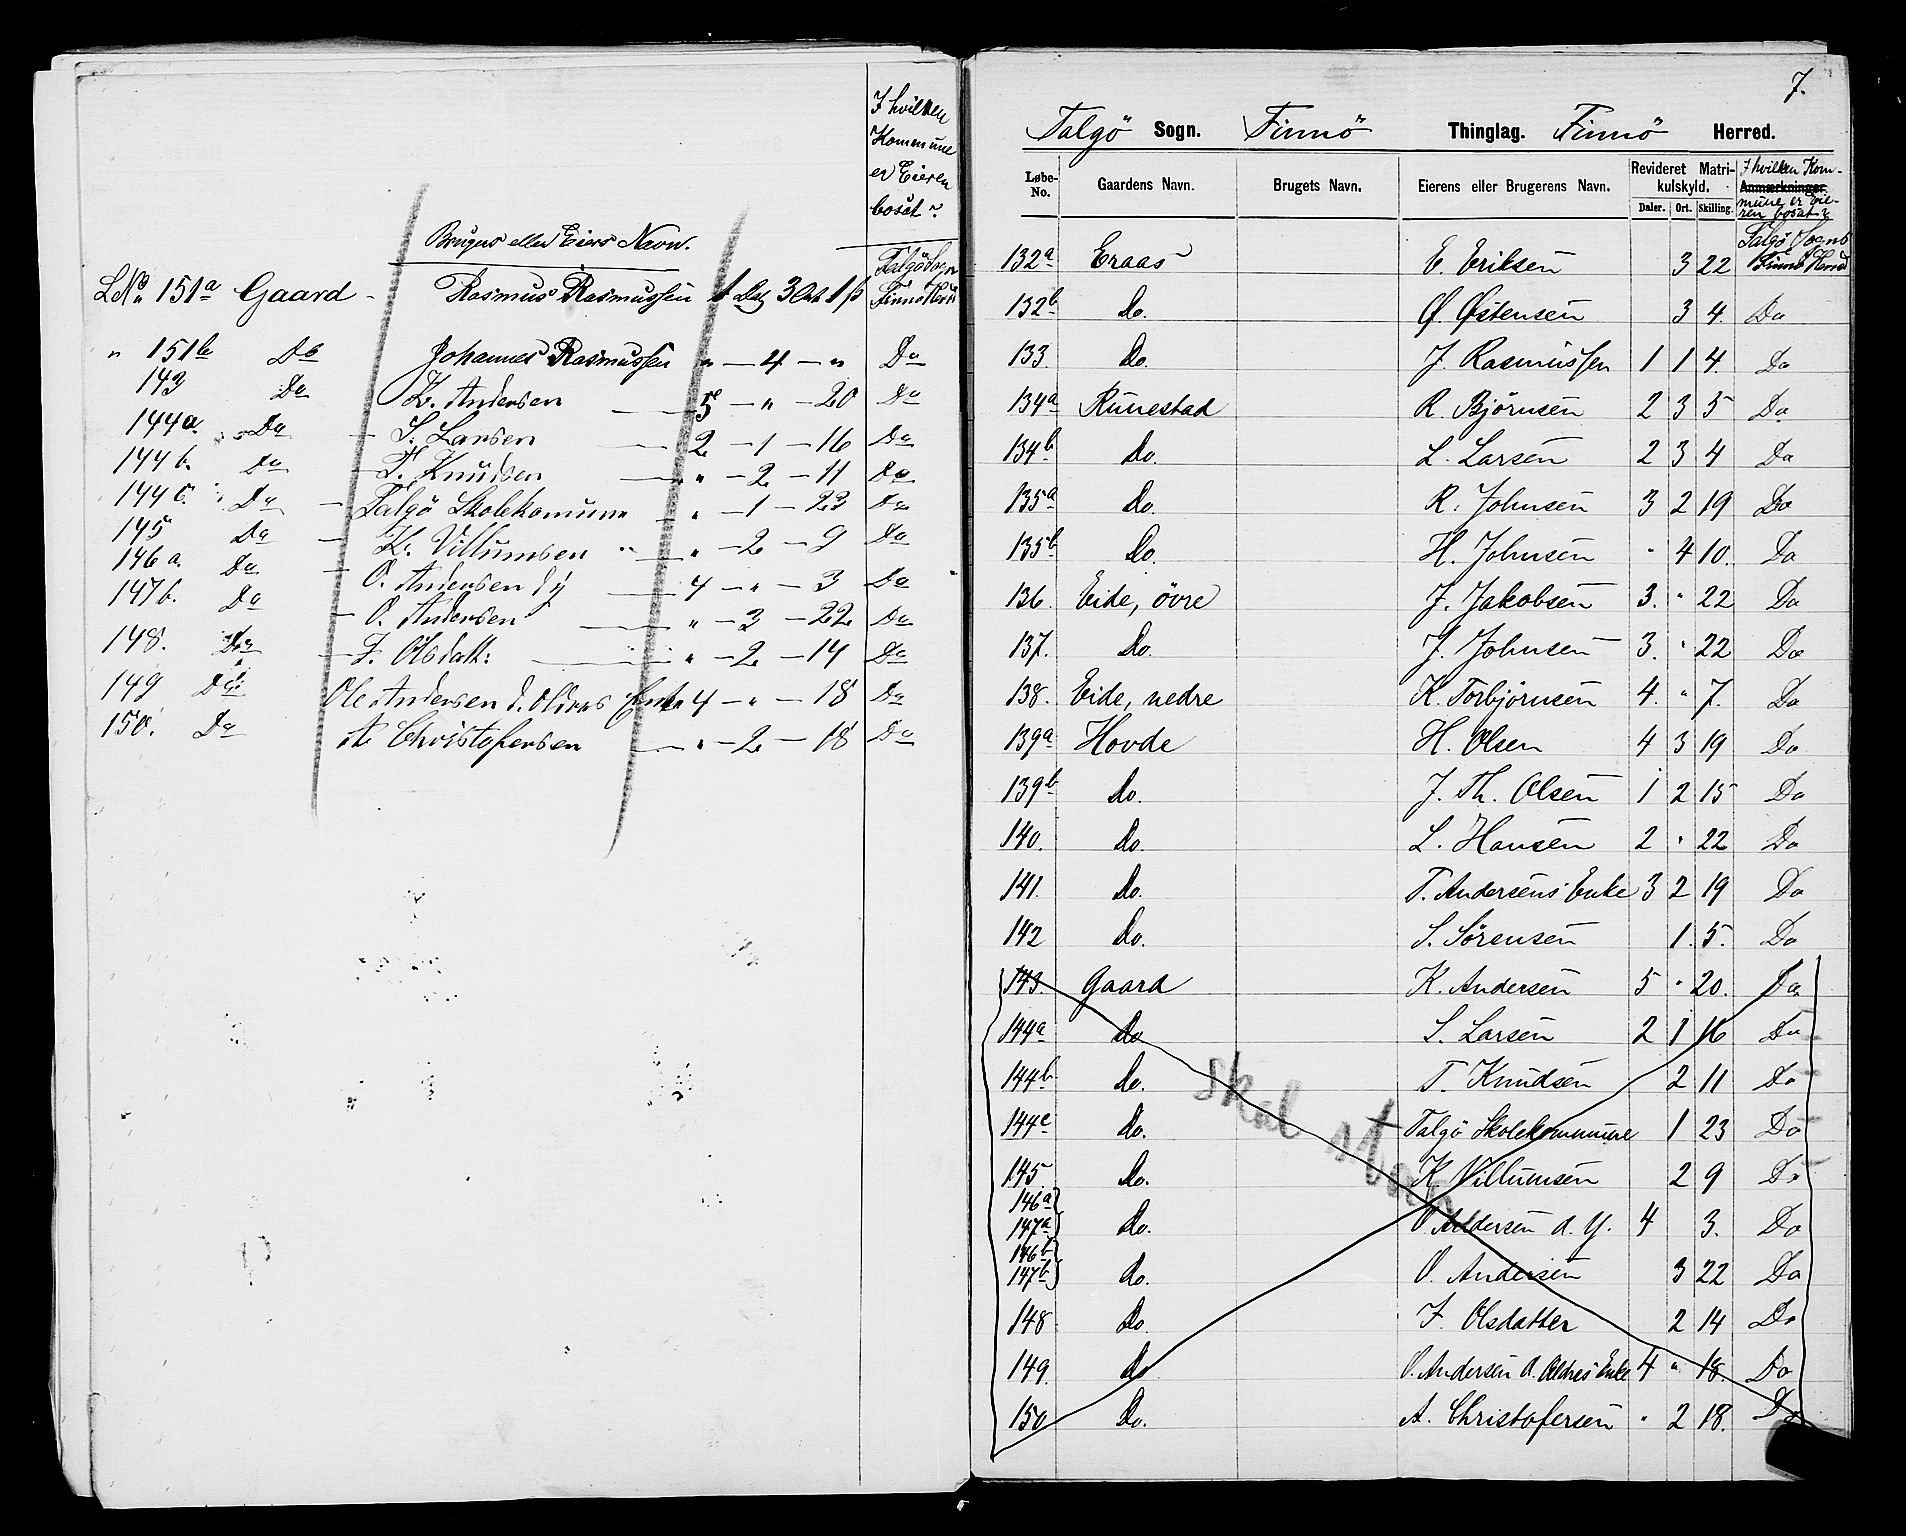 I hvilken
Kommune
er Eieren
bosat?
Brugers eller Eiers Navn.
LNo 151a Gaard - Rasmus Rasmussen 1 Dal 3 Ort 1 ß Talgö Sogn Finnö Herred
" 151b Do Johannes Rasmussen " - 4 - " Do
143 Do K. Andersen 5 - " - 20 Do
144a. Do - S. Larsen 2 - 1 - 16 Do
144b. Do - T. Knudsen " - 2 - 11 Do
144c. Do - Talgö Skolekomune " - 1 - 23 Do
145 Do - K. Villumsen " - 2 - 9 Do
146a. Do - O. Andersen d y 4 - " - 3 Do
147b. Do - O. Andersen " - 3 - 22 Do
148. Do - F. Olsdatt: " - 2 - 14 Do
149 Do Ole Andersen d. Oldres Enke 4 - " - 18 Do
150. Do A Christofersen " - 2 - 18 Do
7.
Talgö Sogn. Finnö Thinglag. Finnö Herred.
Løbe-No. Gaardens Navn. Brugets Navn. Eierens eller Brugerens Navn. Revideret Matrikulskyld. Anmærkninger
Daler. Ort. Skilling.
I hvilken Kom-
mune er Eie-
ren bosat?
132a Eraas E. Eriksen 3 22 Talgö Sogns Finnö Herred
132b Do. Ø. Østensen 3 4 Do
133. Do. J. Rasmussen 1 1 4 Do
134a Runestad R. Björnsen 2 3 5 Do
134b Do. L. Larsen 2 3 4 Do
135a Do. R. Johnsen 3 2 19 Do
135b Do. H. Johnsen " 4 10. Do
136. Eide, övre J. Jakobsen 3. " 22 Do
137. Do. J. Johnsen 3. " 22 Do
138. Eide, nedre K. Torbjörnsen 4. " 7. Do
139a Hovde H. Olsen 4 3 19 Do
139b Do. J. Th. Olsen 1 2 15 Do
140. Do. L. Hansen 2 " 22 Do
141. Do. T. Andersens Enke 3 2 19 Do
142 Do. S. Sörensen 1. 5. Do
143. Gaard K. Andersen 5 " 20. Do
144a Do S. Larsen 2 1 16 Do
144b Do. T. Knudsen 2 11 Do
144c Do. Talgö Skolekommune 1 23 Do
145. Do. K Villumsen 2 9 Do
146a
147a Do. O Andersen d. Y. 4 3. Do
146b
147b do. O. Andersen 3 22 Do
148 Do. F. Olsdatter 2 14 Do
149. do O. Andersen d. Oldres Enke 4 " 18. Do
150 Do. A. Christofersen " 2 18. Do
skal staa